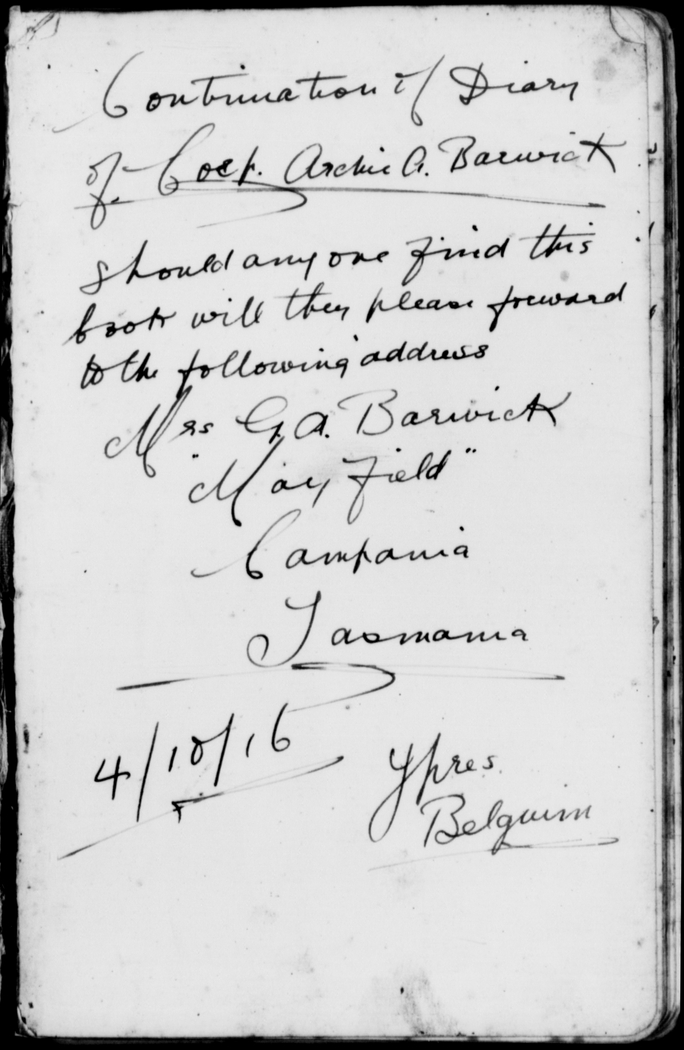 Continuation of Diary
of Corp. Archie A. Barwick
Should any one find this
book will they please foreward
to the following address
Mrs G. A. Barwick
"May Field"
Campania
Tasmania
4/10/16
Ypres.
Belguim